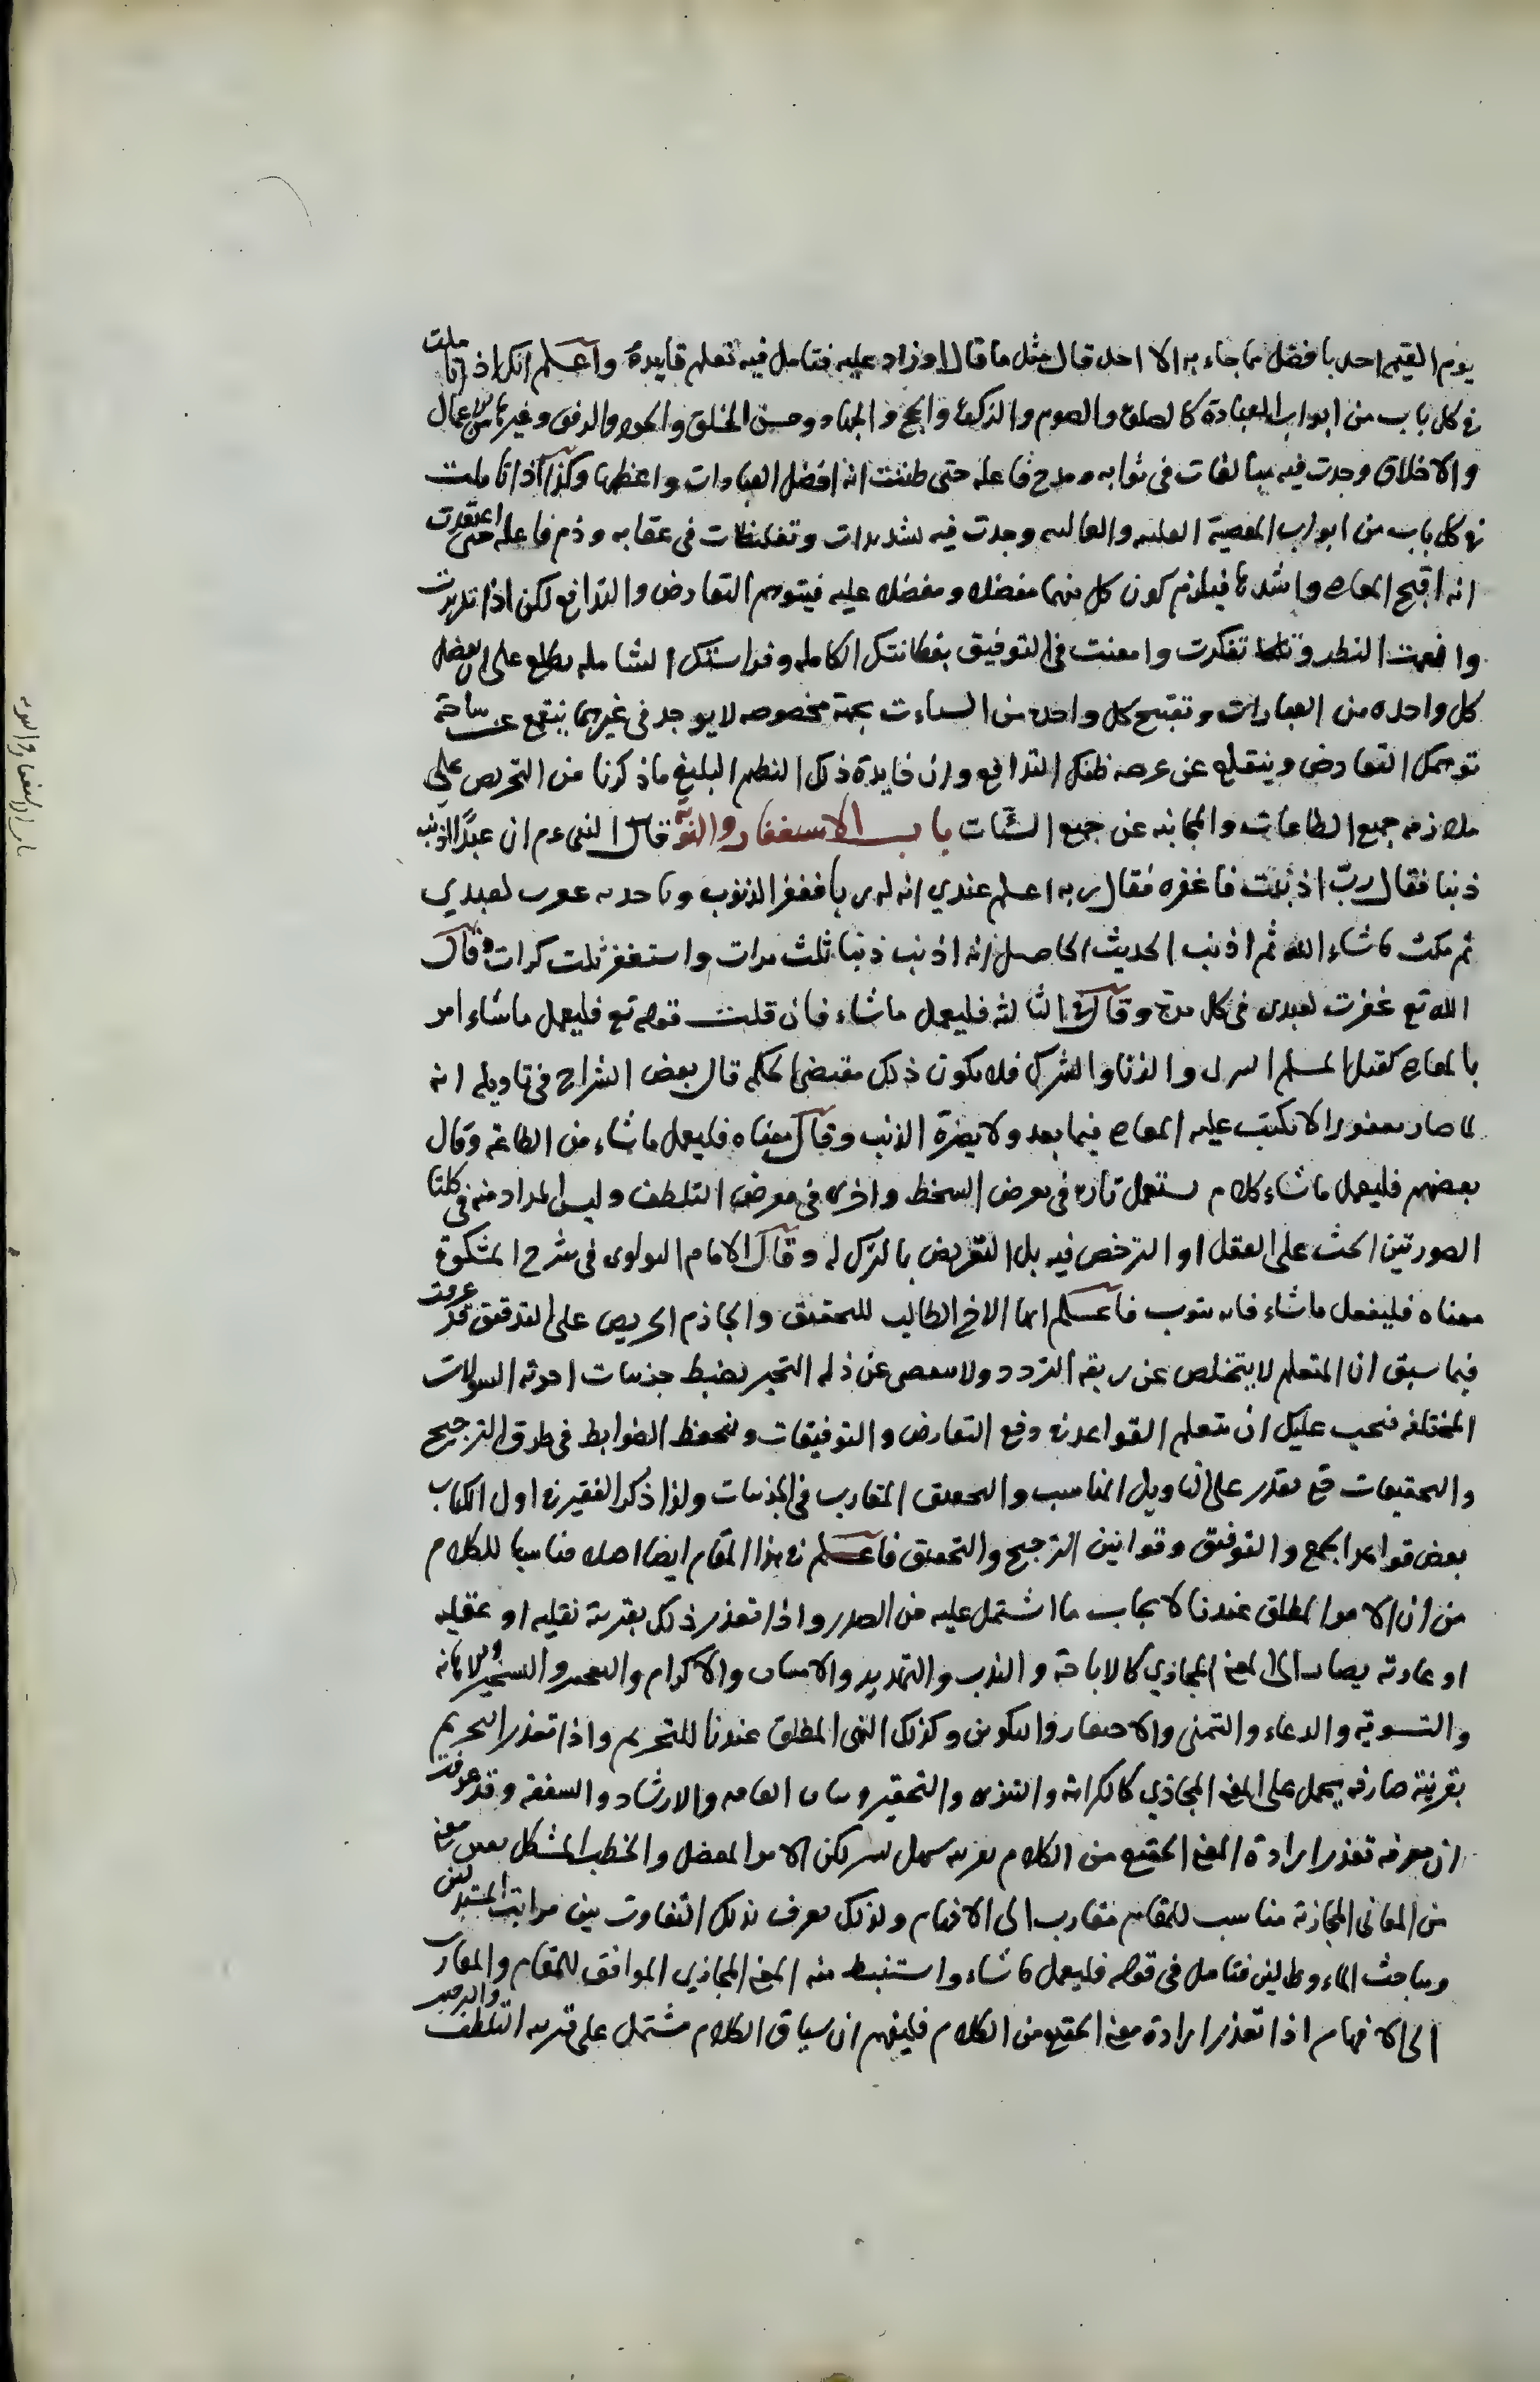 يوم القيمة احد بافضل مما جاء به الا احد قال مثل ما قال او زاد عليه فتامل فيه تعلم فايدة واعلم انك اذا تاملت
في كل باب من ابواب العبادة كالصلوة والصوم والزكوة والحج والجهاد وحسن الخلق والجود والرفق وغيرها من الاعمال
والاخلاق وجدت فيه مبالغات في ثوابه ومدح فاعله حتى ظننت انه افضل العبادات واعظمها وكذا اذا تاملت
في كل باب من ابواب المعصية وجدت فيه تشديدات وتغليظات في عقابه وذم فاعله حتى اعتقدت
انه اقبح المعاصي واشدها فيلزم كون كل منهما مفضلا ومفضلا عليه فيتوهم التعارض والتدافع لكن اذا تدبرت
وامعنت النظر وتفكرت وامعنت في التوفيق بفطانتك الكاملة وفراستك الشاملة تطلع على ان تفضيل
كل واحدة من العبادات وتقبيح كل واحدة من السيئات بجهة مخصوصة لا يوجد في غيرهما ينقطع عن ساحة
توهمك التعارض وينقلع عن عرصة ظنك التدافع وان فايدة ذلك النظم البليغ ما ذكرنا من التحريص على
ملازمة جميع الطاعات والمجانبة عن جميع السيئات باب الاستغفار والتوبة قال النبي عم ان عبدا اذنب
ذنبا فقال رب اذنبت فاغفره فقال ربه اعلم عبدي ان له ربا يغفر الذنوب وياخذ به غفرت لعبدي
ثم مكث ما شاء الله ثم اذنب الحديث الحاصل انه اذنب ذنبا ثلث مرات واستغفر ثلث كرات وقال
الله تع غفرت لعبدي في كل مرة وقال في الثالثة فليعمل ما شاء فان قلت قوله تع فليعمل ما شاء امر
بالمعاصي كقتل المسلم والزنا والشرك فلا يكون ذلك مقتضى الحكمة قال بعض الشراح في تاويله انه
لما صار مغفورا لا تكتب عليه المعاصي فيما بعد ولا يضره الذنب وقال معناه فليعمل ما شاء من الطاعة وقال
بعضهم فليعمل ما شاء كلام يستعمل تارة في معرض السخط واخرى في معرض التلطف وليس المراد منه في كلتا
الصورتين الحث على الفعل او الترخص فيه بل التعريض بالترك له وقال الامام النووي في شرح المشكوة
معناه فليفعل ما شاء فانه يتوب فاعلم ايها الاخ الطالب للتحقيق والجازم الحريص على التدقيق قد عرفت
فيما سبق ان المتعلم لا يتخلص عن ربقة التردد ولا عن ذلة التحير بضبط جزئيات اجوبة السؤالات
المختلفة فيجب عليك ان تتعلم القواعد في دفع التعارض والتوفيقات وتحفظ الضوابط في طرق الترجيح
والتحقيقات حتى تقدر على التاويل المناسب والتحقيق المقارب في الجزئيات ولذا ذكر الفقير في اول الكتاب
بعض قواعد الجمع والتوفيق وقوانين الترجيح والتحقيق فاعلم في هذا المقام ايضا اصلا مناسبا للكلام
من ان الامر المطلق عندنا لايجاب ما اشتمل عليه من المصدر واذا تعذر ذلك بقرينة نقلية او عقلية
او عادية يصار الى المعنى المجازي كالاباحة والندب والتهديد والامتنان والاكرام والتعجيز والتسخير والاهانة
والتسوية والدعاء والتمني والاحتقار والتكوين وكذلك النهي المطلق عندنا للتحريم واذا تعذر التحريم
بقرينة صارفة يحمل على المعنى المجازي كالكراهة والتنزه والتحقير وبيان العاقبة والارشاد والشفقة وقد عرفت
ان معرفة تعذر ارادة المعنى الحقيقي من الكلام بقرينة سهل يسير لكن الامر المعضل والخطب المشكل تعيين معنى
من المعاني المجازية مناسب للمقام متقارب الى الافهام ولذلك يعرف بذلك التفاوت بين مراتب
ومباحث فتامل في قوله فليعمل ما شاء واستنبط منه المعنى المجازي الموافق للمقام والمقارب
الى الافهام اذا تعذر ارادة معنى الحقيقي من الكلام فليفهم ان سياق الكلام مشتمل على قرينة التلطف والترحيب
باب الاستغفار والتوبة